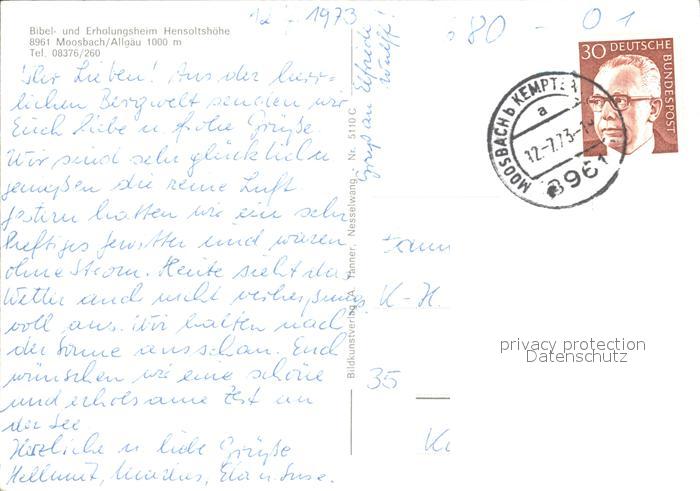 12. 7. 1973
Bibel- und Erholungsheim Hensoltshöhe
8961 Moosbach/Allgäu 1000 m
Tel. 08376/260
Ihr Lieben! Aus der herr-
lichen Bergwelt senden wir
Euch liebe u. frohe Grüße.
Wir sind sehr glücklich u
genießen die reine Luft.
Gestern hatten wir ein sehr
heftiges Gewitter und waren
ohne Strom. Heute sieht das
Wetter auch nicht verheißungs
voll aus. Wir halten nach
der Sonne ausschau. Euch
wünschen wir eine schöne
und erholsame Zeit an
der See
Herzliche u liebe Grüße
Hellmut, u. Suse.
Gruß an Elfriede
Bildkunstverlag A. Tanner, Nesselwang - Nr. 5110 C
680 - 01
30 DEUTSCHE BUNDESPOST
MOOSBACH b KEMPTEN
a
12-7.73-
8961
K-H.
privacy protection
Datenschutz
35